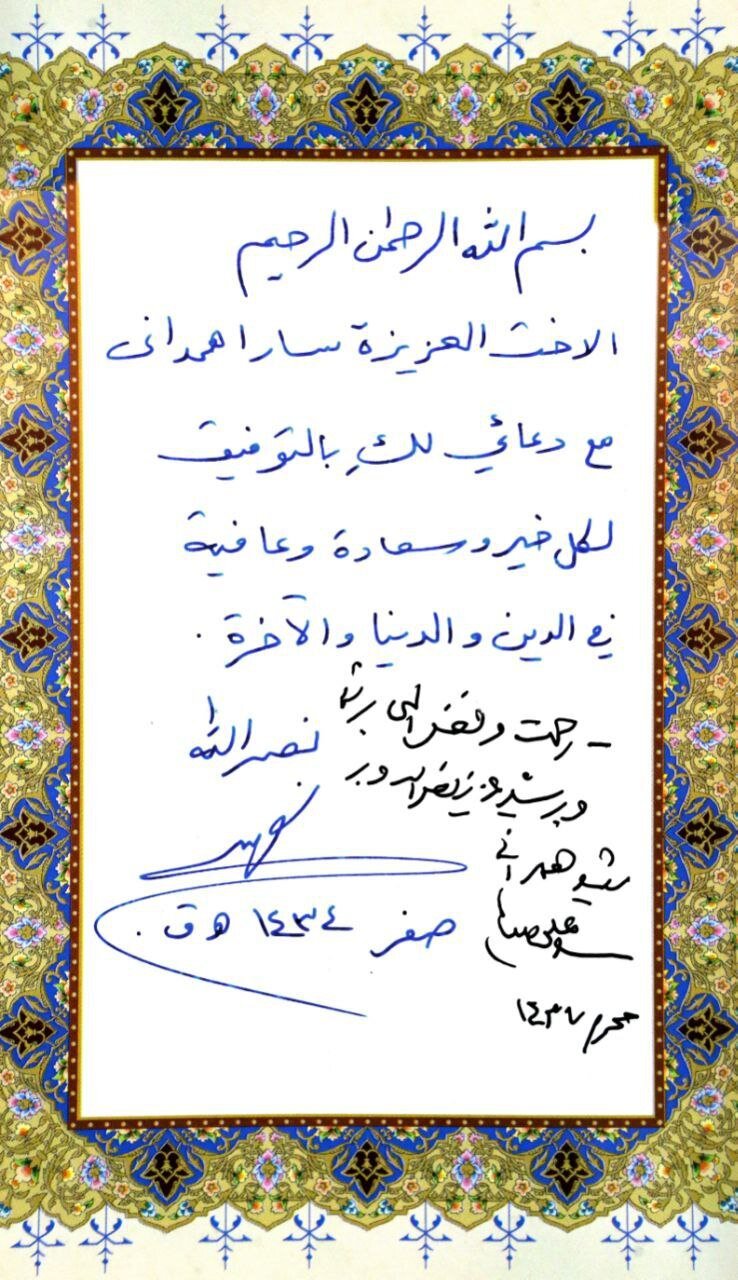 بسم الله الرحمٰن الرحيم
الاخت العزيزة سارا همدانى
مع دعائي لكِ بالتوفيق
لكل خير وسعادة وعافية
في الدين والدنيا والآخرة .
نصر الله
صفر ١٤٣٤ هـ ق .
– رحمت و فضل الهى بر شما
و بر شهید عزیز نصر الله و بر
شهید همدانی
محرم ١٤٣٧